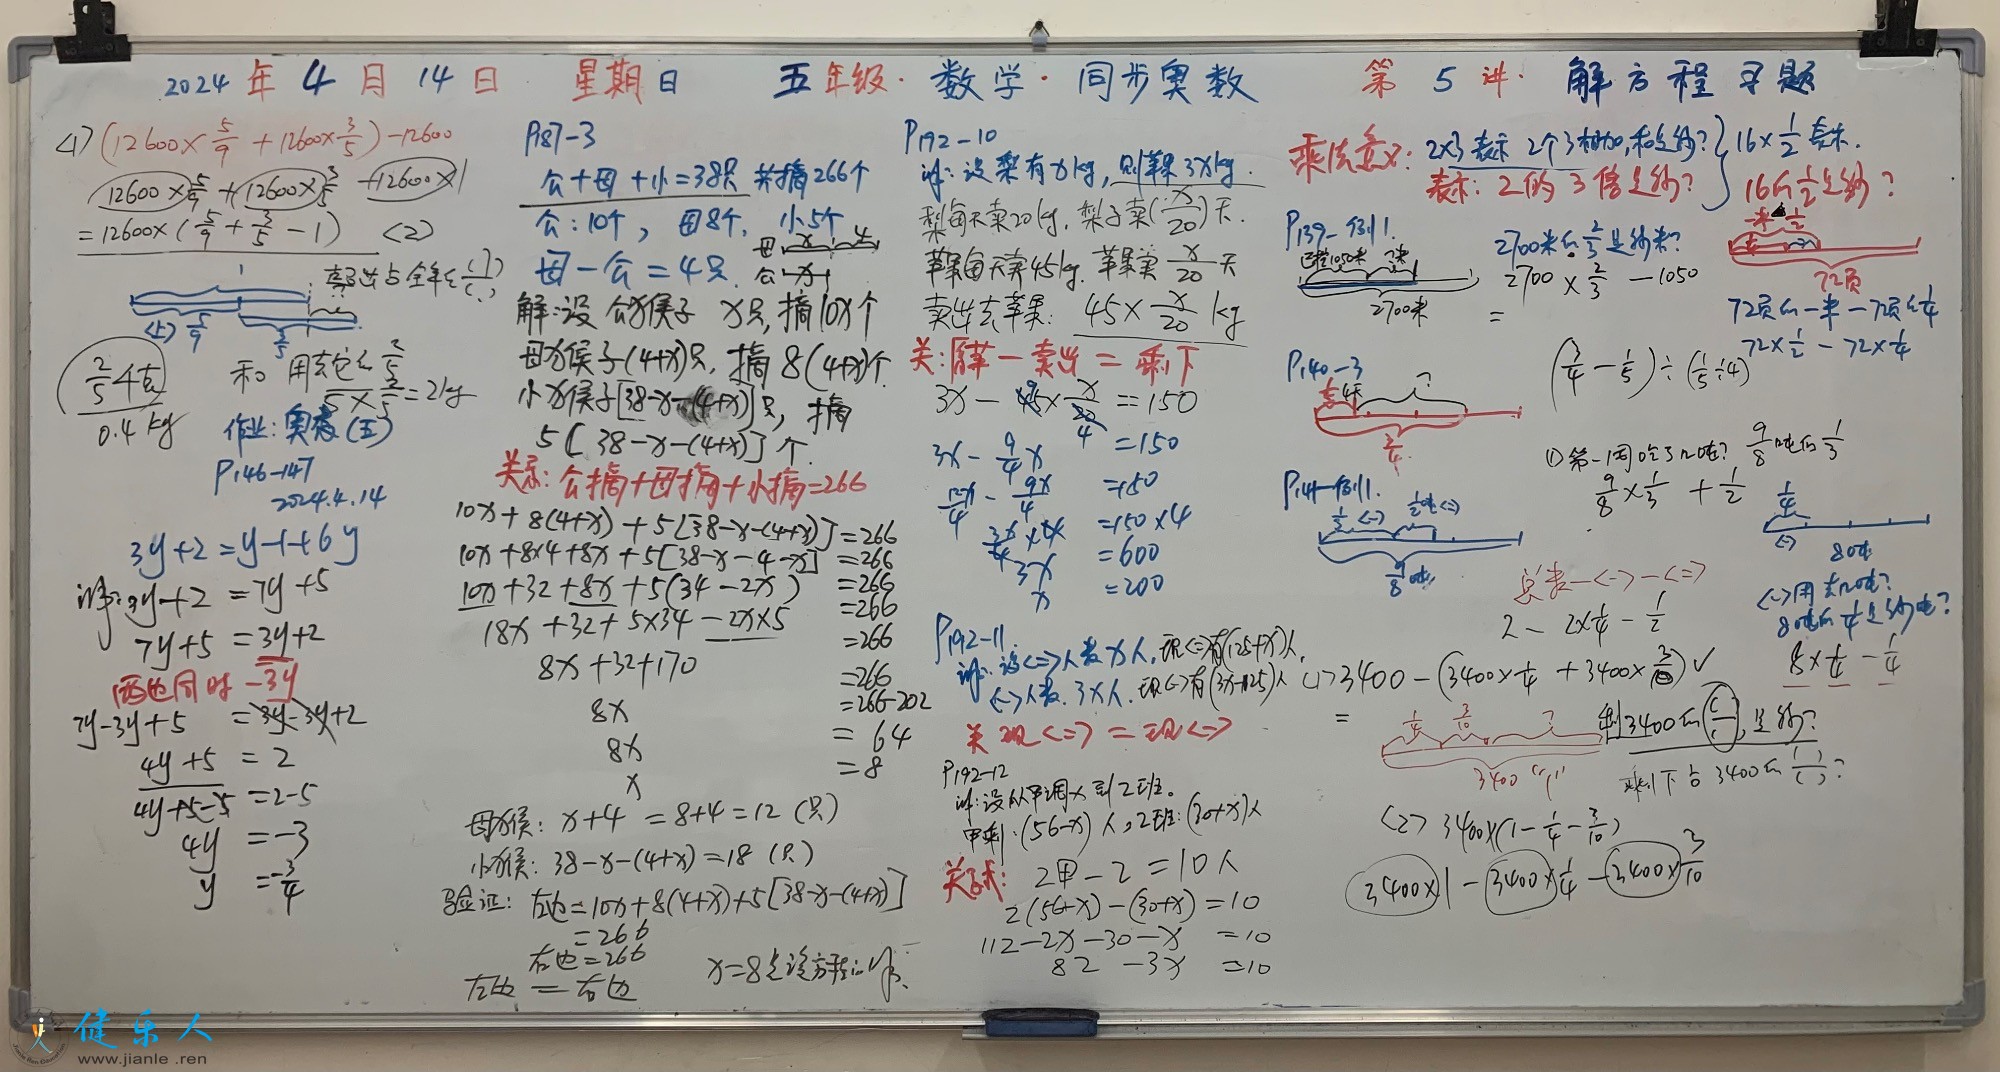 2024年4月14日 星期日 五年级·数学·同步奥数 第5讲·解方程习题
<1> (12600×5/9 + 12600×3/5) -12600
12600×5/9 + 12600×3/5 -12600×1
=12600×(5/9 + 3/5 - 1) <2>
1
<1> 5/9
3/5
2/5千克
0.4kg
和 用去它的2/5
5×2/5=2kg
作业: 奥数(五)
P146-147
2024.4.14
3y+2=y-1+6y
解: 3y+2 =7y+5
7y+5 =3y+2
两边同时 -3y
7y-3y+5 =3y-3y+2
4y+5 = 2
4y+5-5 =2-5
4y =-3
y =-3/4
P187-3
公+母+小=38只 共摘266个
公:10个, 母8个, 小5个
母-公=4只
母 x 4
公 x
解:设公猴子x只,摘10x个
母猴子(4+x)只,摘8(4+x)个
小猴子[38-x-(4+x)]只, 摘
5[38-x-(4+x)]个
关系: 公摘+母摘+小摘=266
10x+8(4+x)+5[38-x-(4+x)]=266
10x+8×4+8x+5[38-x-4-x] =266
10x+32+8x+5(34-2x) =266
18x+32+5×34-2x×5 =266
8x+32+170 =266
=266
8x =266-202
8x = 64
x =8
母猴: x+4 =8+4=12(只)
小猴: 38-x-(4+x)=18(只)
验证: 左边=10x+8(4+x)+5[38-x-(4+x)]
=266
右边=266
左边=右边
x=8是该方程的解
P192-10
解:设梨有xkg,则苹果3xkg.
梨每天卖20kg,梨子卖(x/20)天.
苹果每天卖45kg.苹果卖x/20天
卖出去苹果: 45×x/20 kg
关:原苹-卖出=剩下
3x-45×x/20 =150
3x-9/4x =150
12x/4-9x/4 =150
3x/4×4 =150×4
3x =600
x =200
P192-11
解:设<二>人数x人,现<二>有(125+x)人,
<一>人数.3x人.现<一>有(3x-125)人
关 现<二>=现<一>
P192-12
解:设从甲调x到乙班。
甲剩:(56-x)人,乙班:(30+x)人
关系式: 2甲-乙=10人
2(56-x)-(30+x)=10
112-2x-30-x =10
82 -3x =10
乘法意义: 2×3表示 2个3相加,和是多少? 16×1/2表示.
表示: 2的3倍是多少? 16的1/2是多少?
P139-例1.
已挖1050米 ?米
2700米
2700米的2/3是多少米?
2700×2/3-1050
=
72页
72页的一半-72页的1/4
72×1/2-72×1/4
P140-3
?
3/4
(3/4-1/5)÷(1/5÷4)
P141-例1.
1/3<一> 1/2吨<二>
9/8吨
①第一周吃了几吨? 9/8吨的1/3
9/8×1/3+1/2
1/4
<一>
8吨
<一>用去几吨?
8吨的1/4是多少吨?
8×1/4-1/4
总长-<一>-<二>
2-2×1/4-1/2
<1>3400-(3400×1/4+3400×3/10)✓
=
1/4 3/10 ?
3400"1"
剩3400的( )/( ),是多少?
剩下占3400的( )/( )?
<2>3400×(1-1/4-3/10)
3400×1-3400×1/4-3400×3/10
健乐人
www.jianle.ren